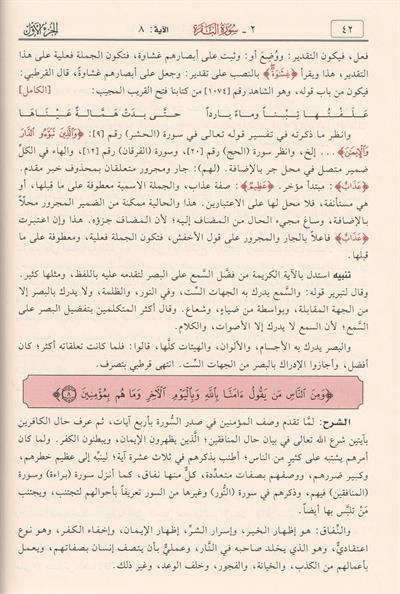 ٤٢
٢ - سُورَةُ البَقَرَة
الآية: ٨
الجزء الأول
فعل، فيكون التقدير: ووُضِعَ أو: وثبت على أبصارهم غشاوة، فتكون الجملة فعلية على هذا
التقدير، هذا ويقرأ ﴿غِشَٰوَةٌ﴾ بالنصب على تقدير: وجعل على أبصارهم غشاوةً، قال القرطبي:
فيكون من باب قوله، وهو الشاهد رقم [١٠٧٤] من كتابنا فتح القريب المجيب: [الكامل]
عَلَفْتُهَا تِبْناً وماءً بارداً حتَّى بدَتْ هَمَّالَةً عَيْنَاهَا
وانظر ما ذكرته في تفسير قوله تعالى في سورة (الحشر) رقم [٩]: ﴿وَالَّذِينَ تَبَوَّءُو الدَّارَ
وَالْإِيمَٰنَ﴾ ... إلخ، وانظر سورة (الحج) رقم [٢٠]، وسورة (الفرقان) رقم [١٢]، والهاء في الكلِّ
ضمير متصل في محل جر بالإضافة. (لهم): جار ومجرور متعلقان بمحذوف خبر مقدم.
﴿عَذَابٌ﴾: مبتدأ مؤخر. ﴿عَظِيمٌ﴾: صفة عذاب، والجملة الاسمية معطوفة على ما قبلها، أو
هي مستأنفة، فلا محل لها على الاعتبارين. هذا والحالية ممكنة من الضمير المجرور محلاً
بالإضافة، وساغ مجيء الحال من المضاف إليه؛ لأن المضاف جزؤه. هذا وإن اعتبرت
﴿عَذَابٌ﴾ فاعلاً بالجار والمجرور على قول الأخفش، فتكون الجملة فعلية، ومعطوفة على ما
قبلها.
تنبيه استدل بالآية الكريمة من فضَّل السَّمع على البصر لتقدمه عليه باللفظ، ومثلها كثير.
وقال لتبرير قوله: والسمع يدرك به الجهات السِّت، وفي النور، والظلمة، ولا يدرك بالبصر إلا
من الجهة المقابلة، وبواسطة من ضياءٍ، وشعاع. وقال أكثر المتكلمين بتفضيل البصر على
السمع؛ لأن السمع لا يدرك إلا الأصوات، والكلام.
والبصر يدرك به الأجسام، والألوان، والهيئات كلَّها، قالوا: فلما كانت تعلقاته أكثر؛ كان
أفضل، وأجازوا الإدراك بالبصر من الجهات السِّت. انتهى قرطبي بتصرف.
﴿وَمِنَ النَّاسِ مَن يَقُولُ ءَامَنَّا بِاللَّهِ وَبِالْيَوْمِ الْآخِرِ وَمَا هُم بِمُؤْمِنِينَ ٨﴾
الشرح: لمَّا تقدم وصف المؤمنين في صدر السُّورة بأربع آيات، ثم عرف حال الكافرين
بآيتين شرع الله تعالى في بيان حال المنافقين؛ الَّذين يظهرون الإيمان، ويبطنون الكفر. ولما كان
أمرهم يشتبه على كثيرٍ من الناس؛ أطنب بذكرهم في ثلاث عشرة آية؛ لينبِّه إلى عظيم خطرهم،
وكبير ضررهم، ووصفهم بصفات متعدِّدة، كلُّ منها نفاق، كما أنزل سورة (براءة) وسورة
(المنافقين) فيهم، وذكرهم في سورة (النُّور) وغيرها من السور تعريفاً بأحوالهم لتجتنب، ويجتنب
مَنْ تلبَّس بها أيضاً.
والنِّفاق: هو إظهار الخير، وإسرار الشرِّ، إظهار الإيمان، وإخفاء الكفر، وهو نوع
اعتقاديٌّ، وهو الذي يخلد صاحبه في النَّار، وعمليٌّ بأن يتصف إنسان بصفاتهم، ويعمل
بأعمالهم من الكذب، والخيانة، والفجور، وخلف الوعد، وغير ذلك.